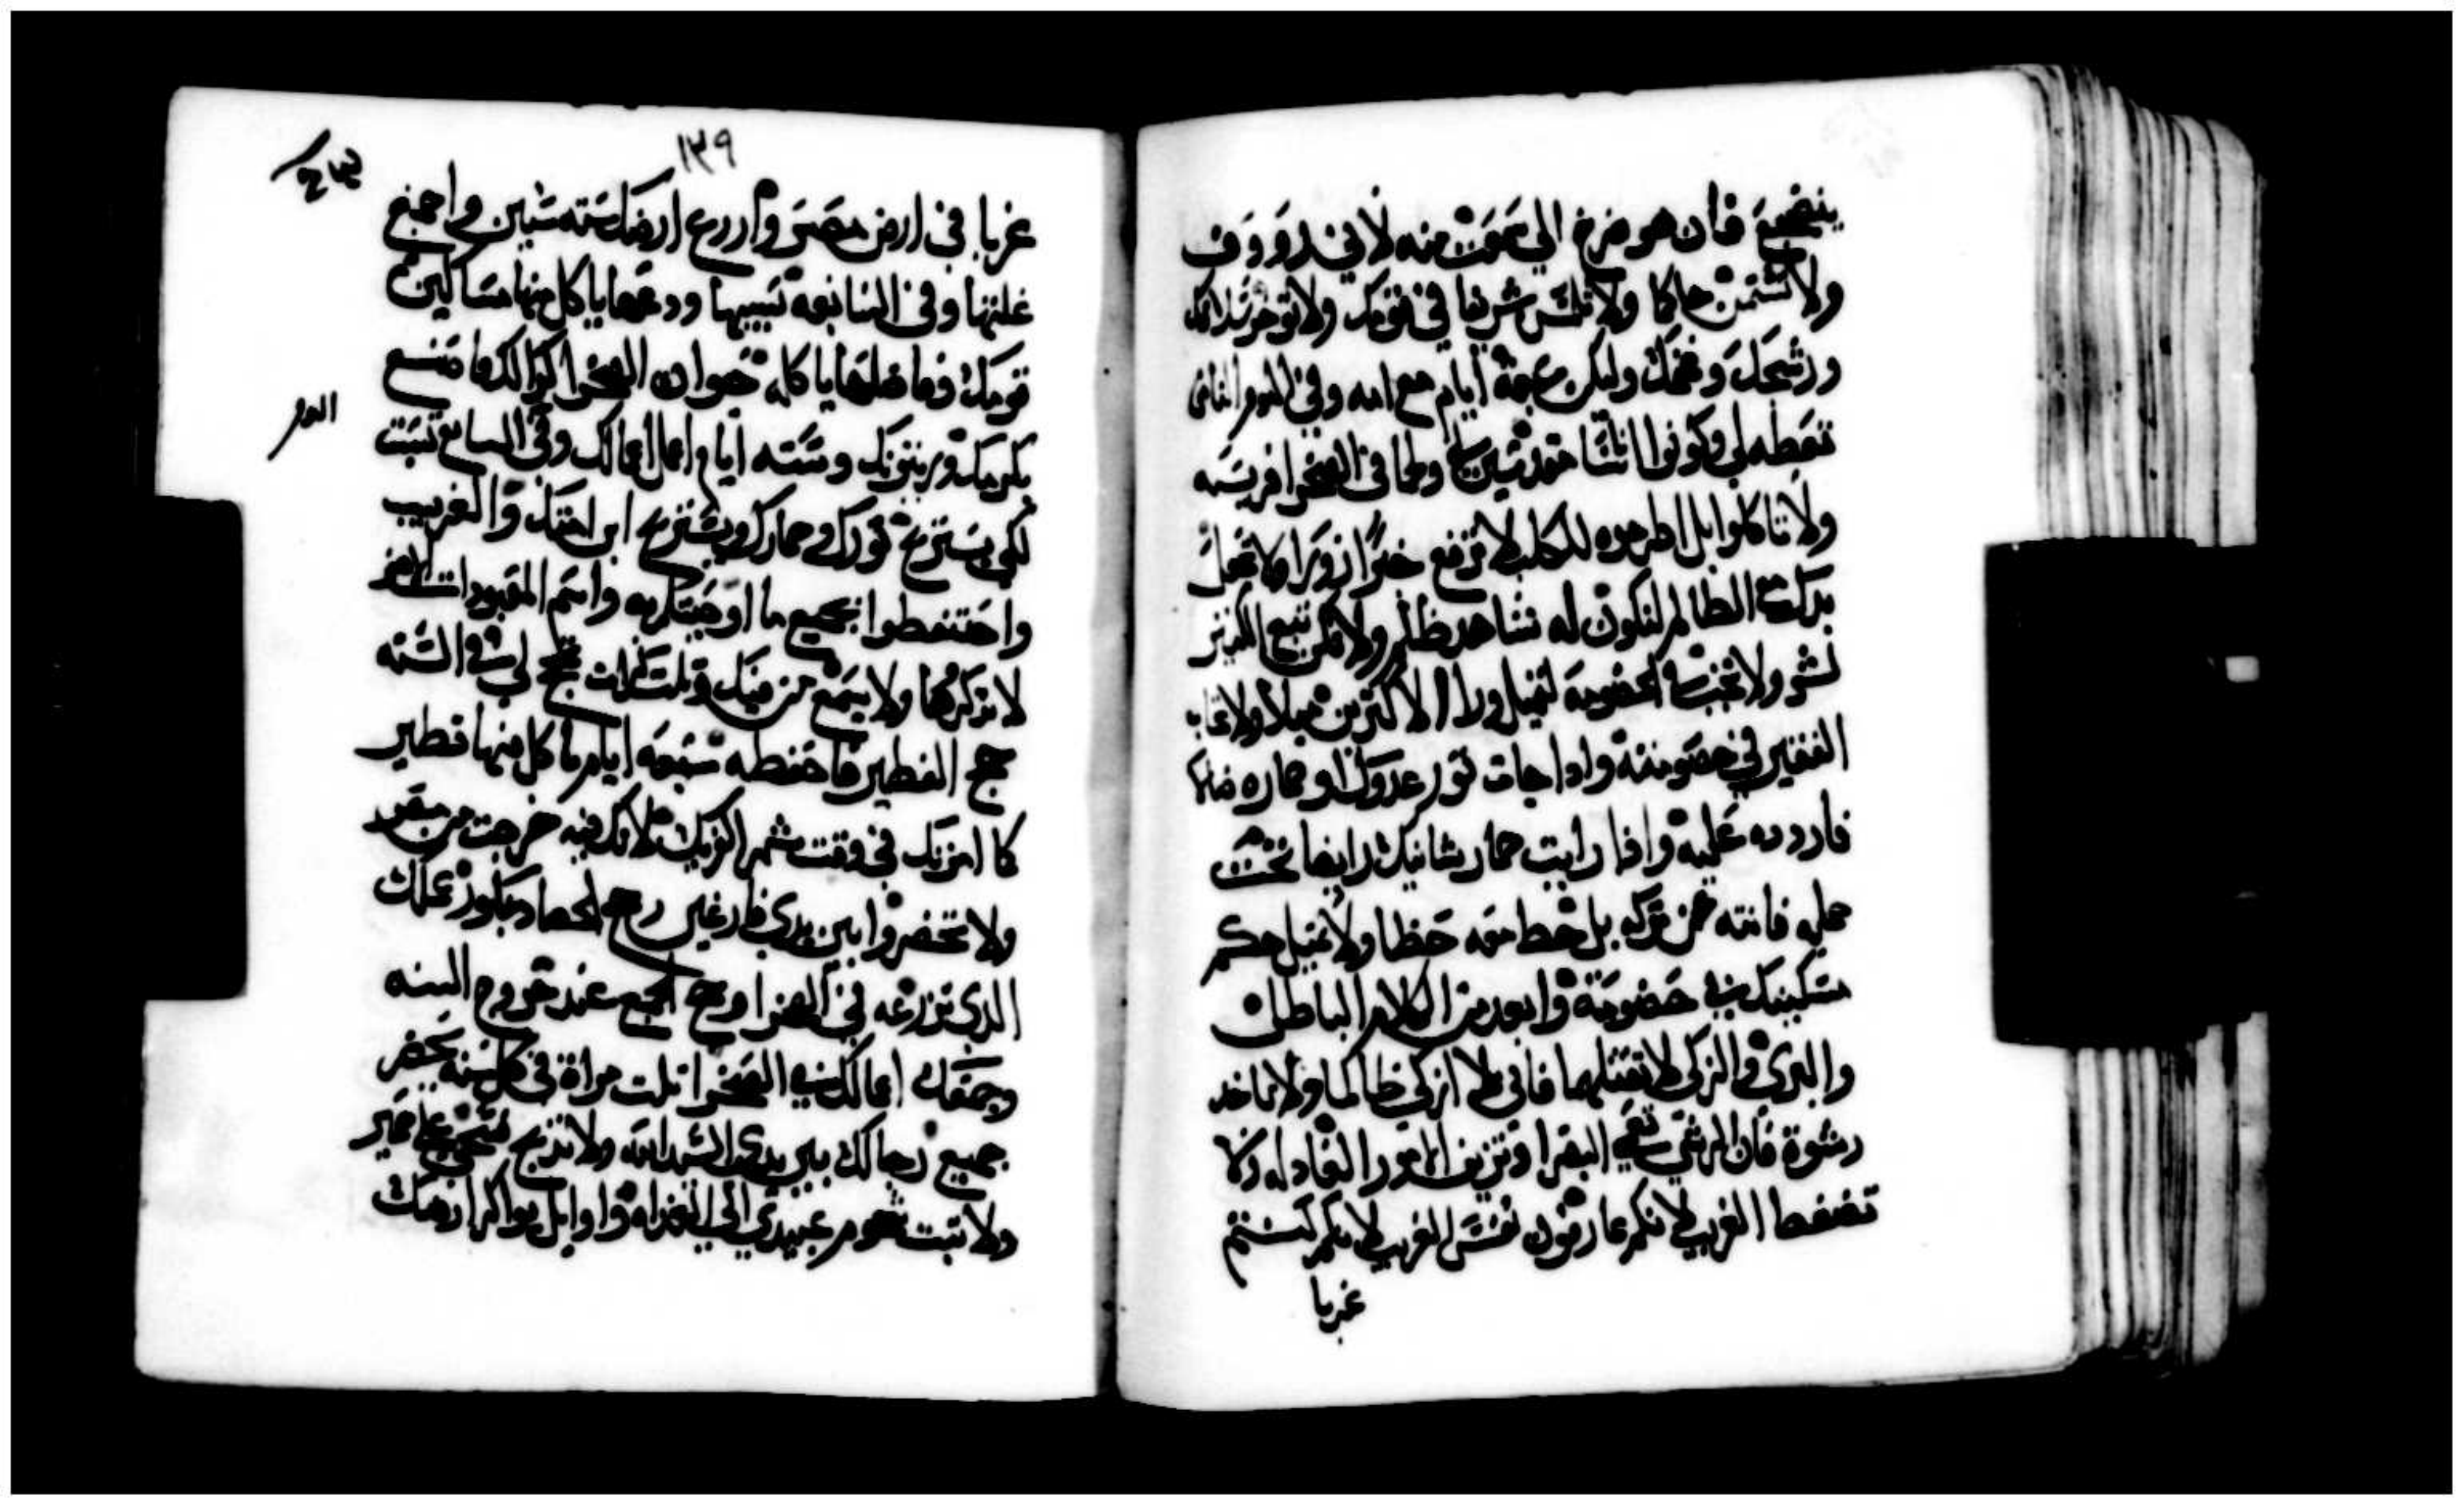 ينضجع فان هو صرخ الي سمعت منه لاني رووف
ولا تشتمن حاكما ولا تلعن شريفا في قومك ولا توخر بدانك
ورشحك وغنمك وليكن سبعة ايام مع امه وفي اليوم الثامن
تعطه لي وكونوا اناسا مقدسين لي ولحما في الصحرا فريسه
ولا تاكلوا بل اطرحوه للكلب لا ترفع خبرا زورا ولا تجعل
يدك مع الظالم لتكون له شاهد ظلم ولا تكن تتبع الكثير
لشر ولا تجب في الخصومة لتميل ورا الاكثرين ميلا ولا تحاب
الفقير في خصومته واداجات ثور عدوك او حماره ضالا
فاردده عليه واذا رايت حمار شانيك رابضا تحت
حمله فانته عن تركه بل حط معه حطا ولا تميل حكم
مسكينك في خصومة وابعد من الكلام الباطل
والبري والزكي لا تقتلهما فاني لا ازكي ظالما ولا تاخد
رشوة فان الرشي تعمي البصرا وتزيف الامور العادله ولا
تضغطا الغريب لانكم عارفون نفس الغريب لانكم كنتم
غربا
١٣٩
غربا في ارض مصر وازرع ارضك سته سنين واجمع
غلتها وفي السابعه تسيبها ودعها ياكل منها مساكين
قومك وفاضلها ياكله حيوان الصحرا كذالك فاصنع
بكرمك وزيتونك وسته ايام اعمل اعمالك وفي السابع تسبت
لكي يستريح ثورك وحمارك ويستريح ابن امتك والغريب
واحتفظوا بجميع ما اوصيتكم به واسم المعبودات الاخر
لا تذكرها ولا يسمع من فيك وثلت مرات تحج لي في السنه
حج الفطير فاحفظه سبعه ايام تاكل منها فطير
كما امرتك في وقت شهر الفريك لانك فيه خرجت من مصر
ولا تحضروا بين يدي فارغين وحج الحصاد بكور عملك
الذي تزرعه في الصحرا وحج الجمع عند خروج السنه
وجمعك اعمالك في الصحرا ثلت مراة في كل سنه يحضر
جميع رجالك بين يدي السيد الله ولا تذبح ذبيحتي علي خمير
ولا تبت شحوم عبيدي الي الغداه واوايل بواكر ارضك